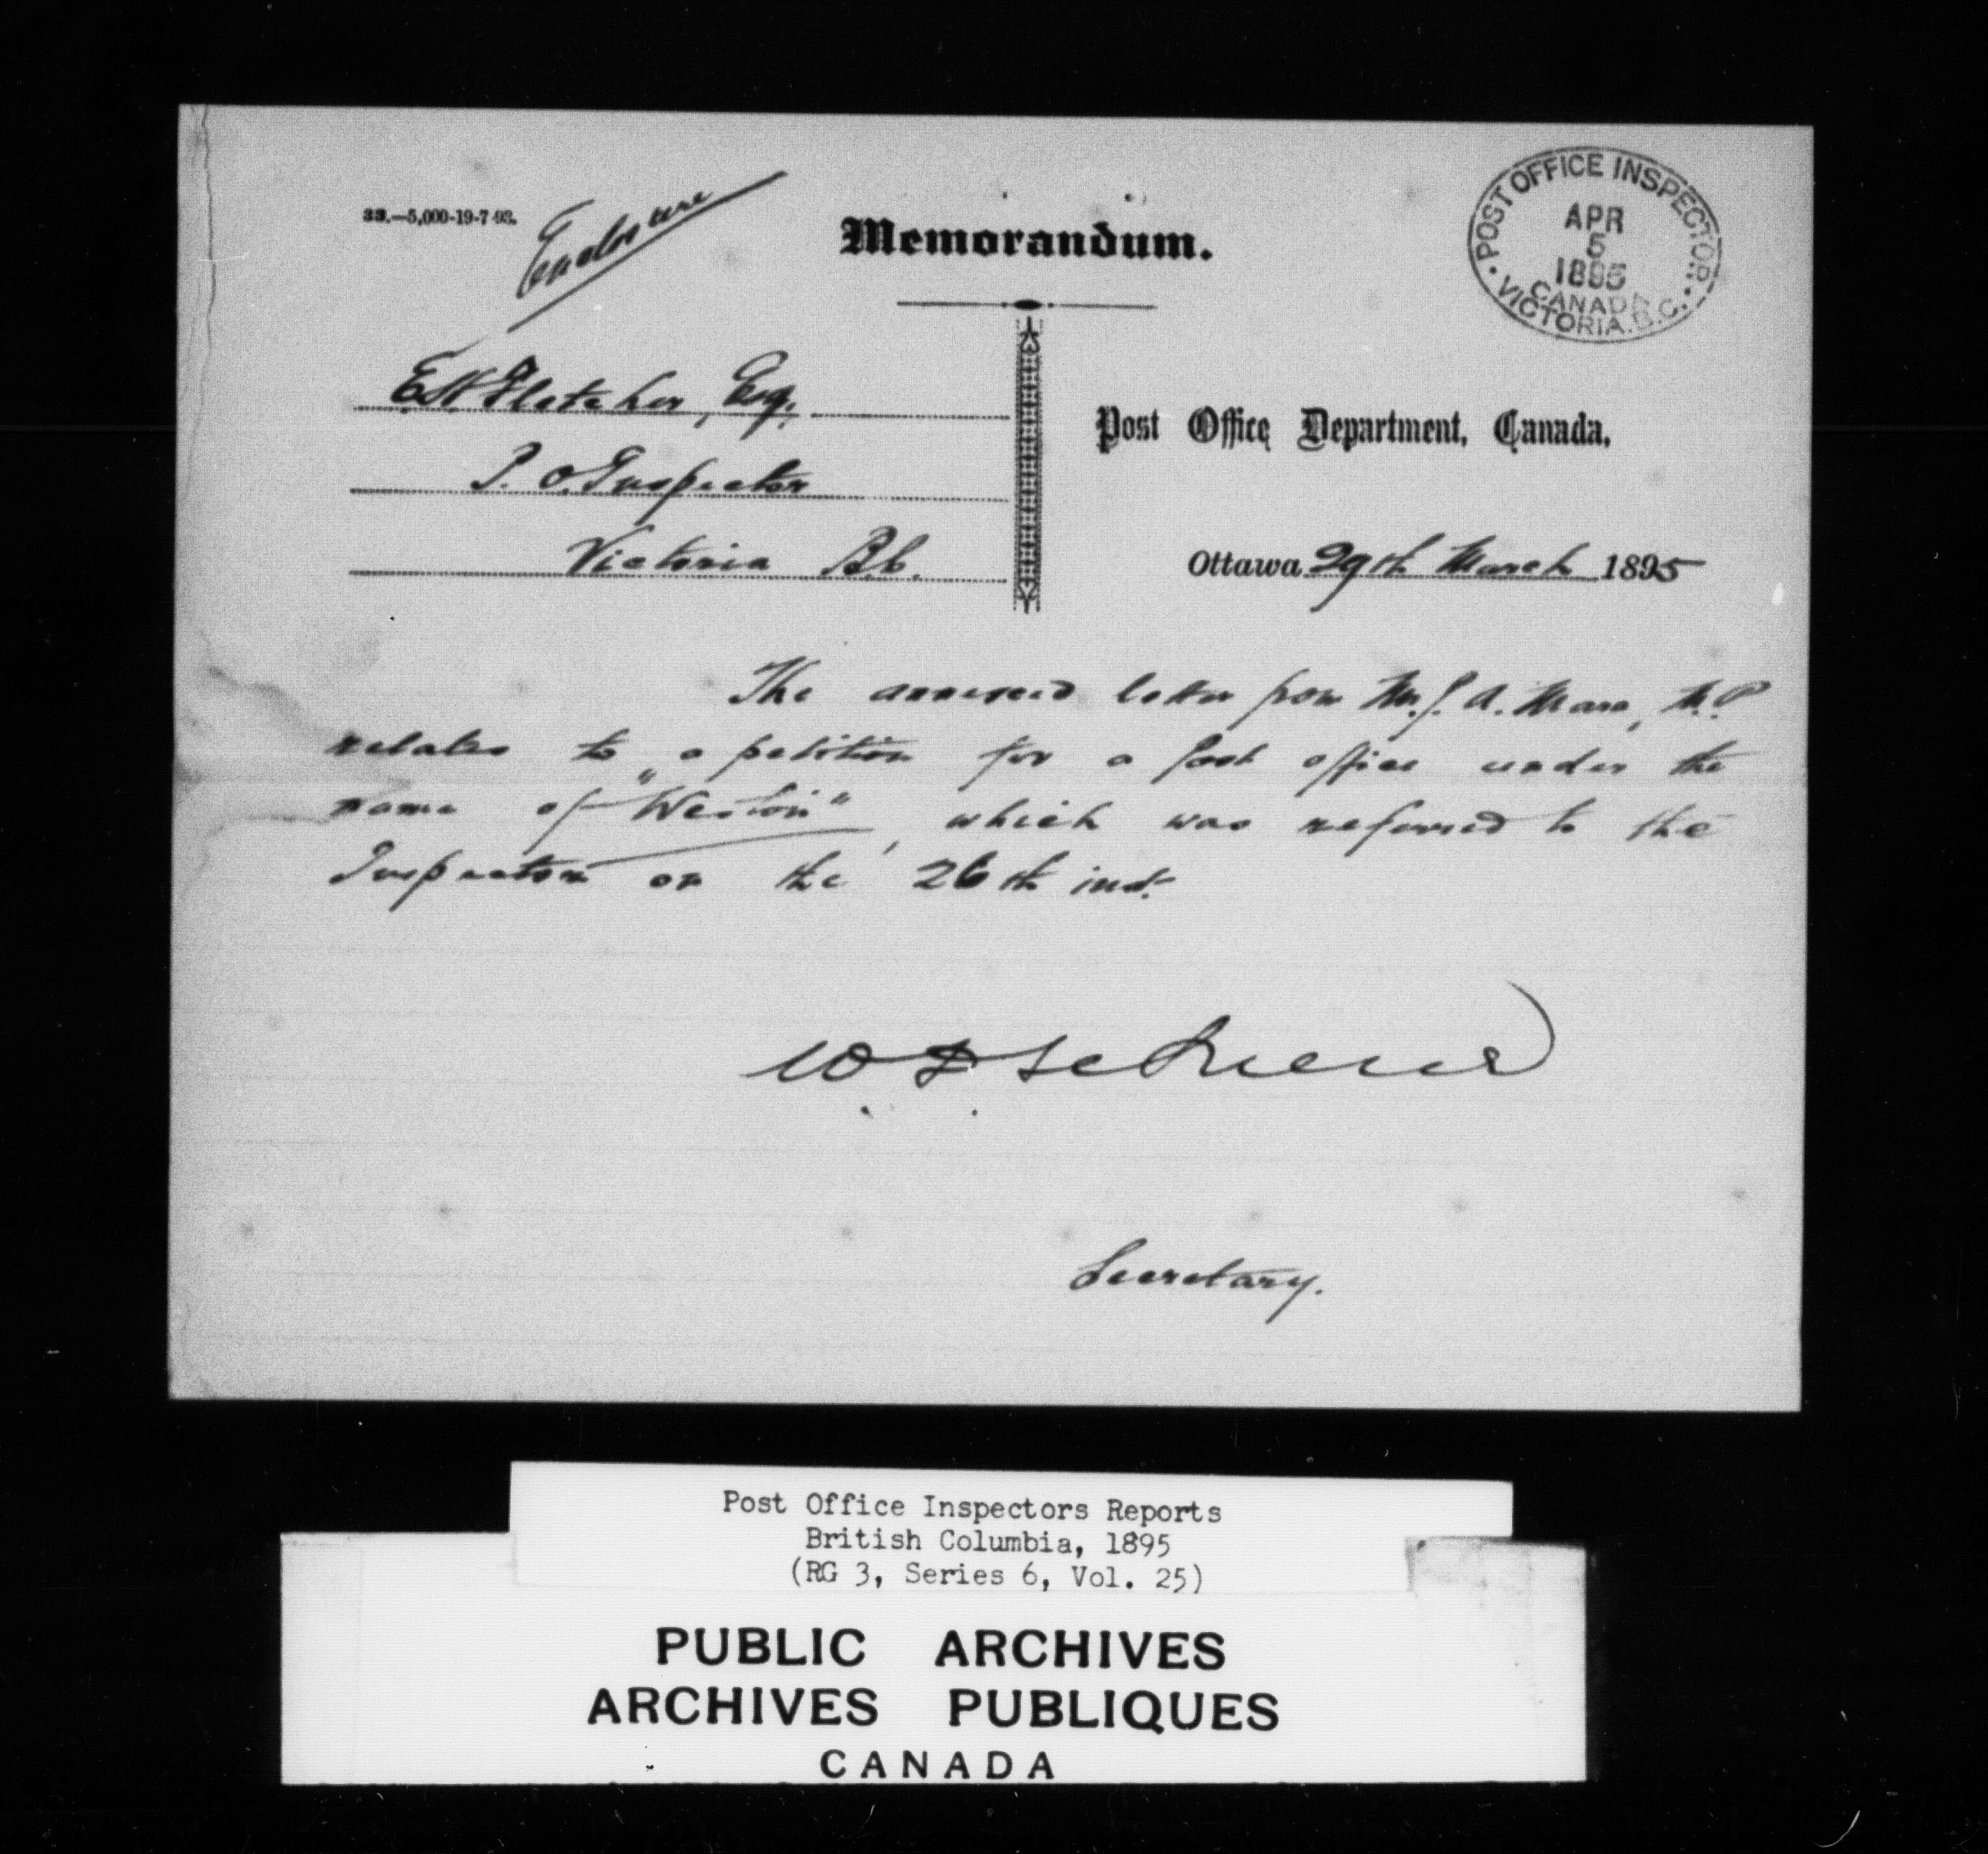 33.—5,000-19-7-93.
Enclosure
Memorandum.
POST OFFICE INSPECTOR.
APR
5
1895
CANADA
VICTORIA. B.C.
E.H. Fletcher, Esq.,
P. O. Inspector
Victoria B.C.
Post Office Department, Canada,
Ottawa 29th March 1895
The annexed letter from Mr. J. A. Mara, M.P
relates to a petition for a Post office under the
name of "Weston", which was referred to the
Inspector on the 26th inst.
W D
Secretary.
Post Office Inspectors Reports
British Columbia, 1895
(RG 3, Series 6, Vol. 25)
PUBLIC ARCHIVES
ARCHIVES PUBLIQUES
CANADA